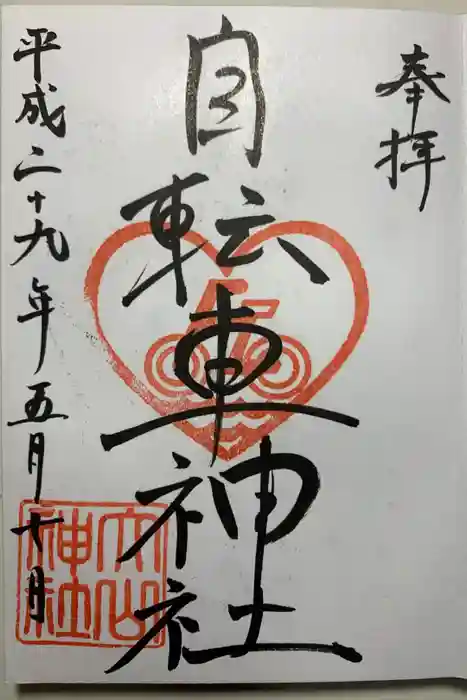 奉拝
自転車神社
平成二十九年五月七日
大山神社